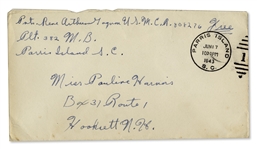 Pvt. Rene Arthur Gagnon U.S.M.C.R. 302276 Free
Plt. 382 M.B.
Parris Island S.C.
PARRIS ISLAND
JUN 7
1943
S. C.
1
Miss Pauline Harnois
Box 31 Route 1
Hooksett N.H.